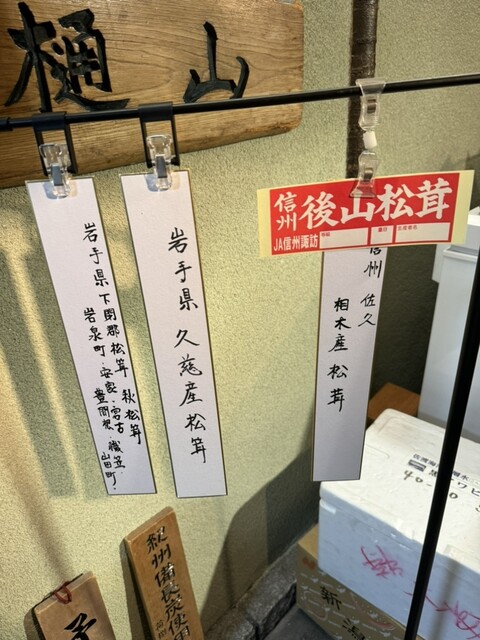 樋山
岩手県 下閉郡 松茸 秋松茸
岩泉町・安家・宮古
豊間根・織笠・
山田町・
岩手県 久慈産 松茸
信州
後山松茸
JA信州諏訪
信州 佐久
相木産 松茸
紀州備長炭使用
新
40-50